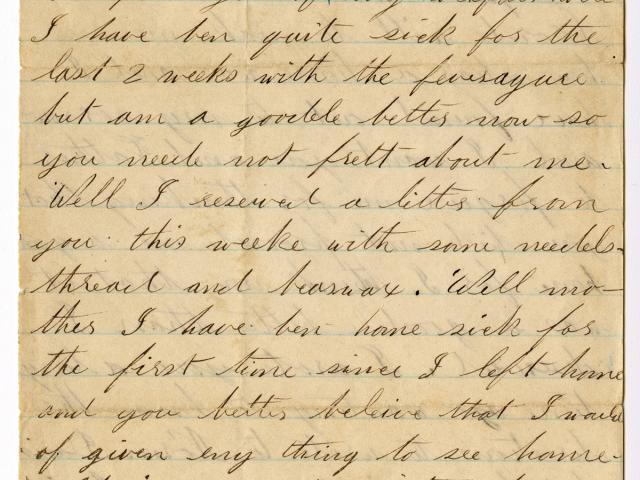 I have ben quite sick for the
last 2 weeks with the feveragure
but am a goodele better now so
you neede not frett about me.
Well I reserved a letter from
you this weeke with some needels
thread and beaswax. Well mo-
ther I have ben home sick for
the first time since I left home
and you better beleive that I would
of given eny thing to see home